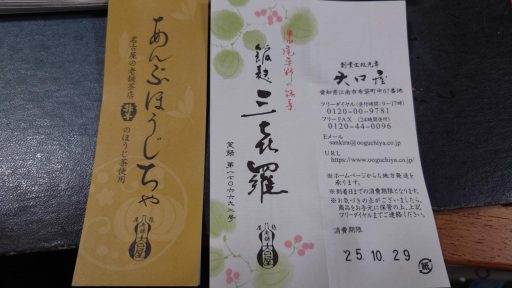 あんぶほうじちゃ
名古屋の老舗茶店
のほうじ茶使用
餡麩三喜羅
登録 第一七〇六六九二号
創業古故元年
大口屋
愛知県江南市布袋町中67番地
フリーダイヤル(受付時間:9〜17時)
0120-00-9781
フリーFAX (24時間受付)
0120-44-0096
Eメール
sankira@ooguchiya.co.jp
URL
https://www.ooguchiya.co.jp
※ホームページからも地方発送を
承ります。
※到着日までの消費期限となります。
※お気づきの点がございましたら、
商品をお手元に保管の上、上記
フリーダイヤルまでご連絡ください。
消費期限
25.10.29
紙